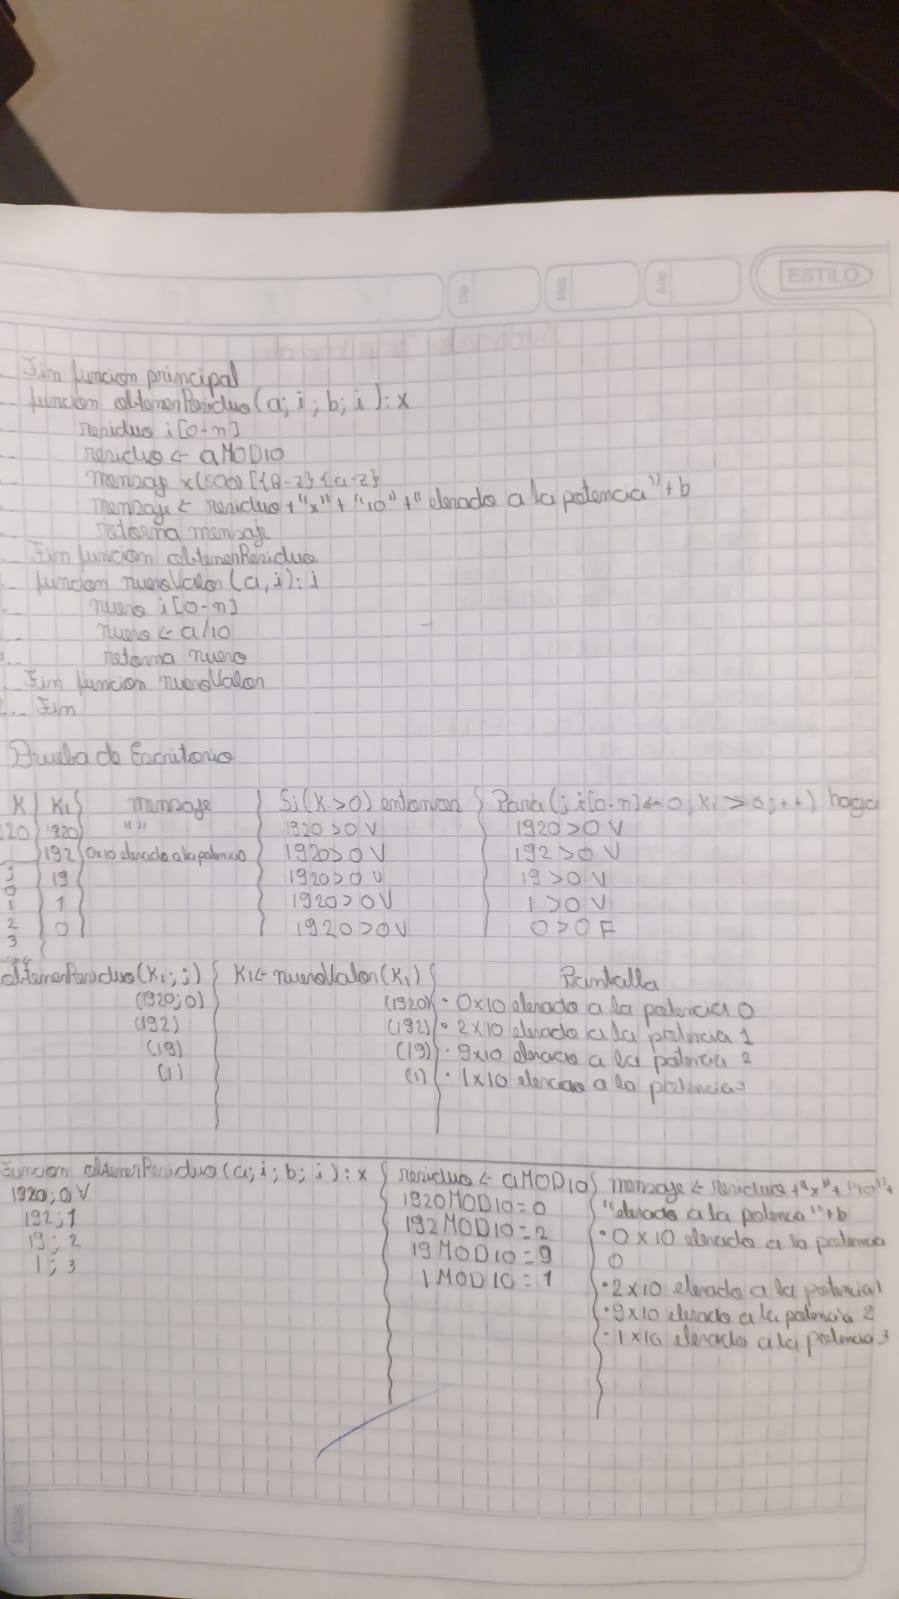 ESTILO
Dia
Mes
Año
Fin funcion principal
funcion obtenerResiduo (a; i ; b; i ): x
residuo i [0-n]
residuo ← aMOD10
mensaje x(500) [{A-z} {a-z}
mensaje ← residuo +"x"+ "10" +" elevado a la potencia"+b
retorna mensaje
Fin funcion obtenerResiduo
funcion nuevoValor (a, i): i
nuevo i [0-n]
nuevo ← a/10
retorna nuevo
Fin funcion nuevoValor
Fin
Prueba de Escritorio
K K1 mensaje Si(K>0) entonces Para(j i[0-n]←0, K1 >0; ++) haga
20 1920 " " 1920>0 V 1920>0 V
192 0x10 elevado a la potencia 1920>0 V 192>0 V
j 19 1920>0 V 19>0 V
0
1 1 1920>0V 1>0 V
2 0 1920>0V 0>0 F
3
obtenerResiduo(K1; j) K1← nuevoValor(K1) Pantalla
(1920; 0) (1920) • 0x10 elevado a la potencia 0
(192) (192) • 2x10 elevado a la potencia 1
(19) (19) • 9x10 elevado a la potencia 2
(1) (1) • 1x10 elevado a la potencia 3
Funcion obtenerResiduo (a; i; b; i): x residuo ← aMOD10 mensaje ← residuo +"x"+ "10"+
1920; 0 V 1920MOD10=0 "elevado a la potencia"+b
192; 1 192MOD10=2 • 0x10 elevado a la potencia
19; 2 19MOD10=9 0
1; 3 1MOD10=1 • 2x10 elevado a la potencia 1
• 9x10 elevado a la potencia 2
- 1x10 elevado a la potencia 3
Notas